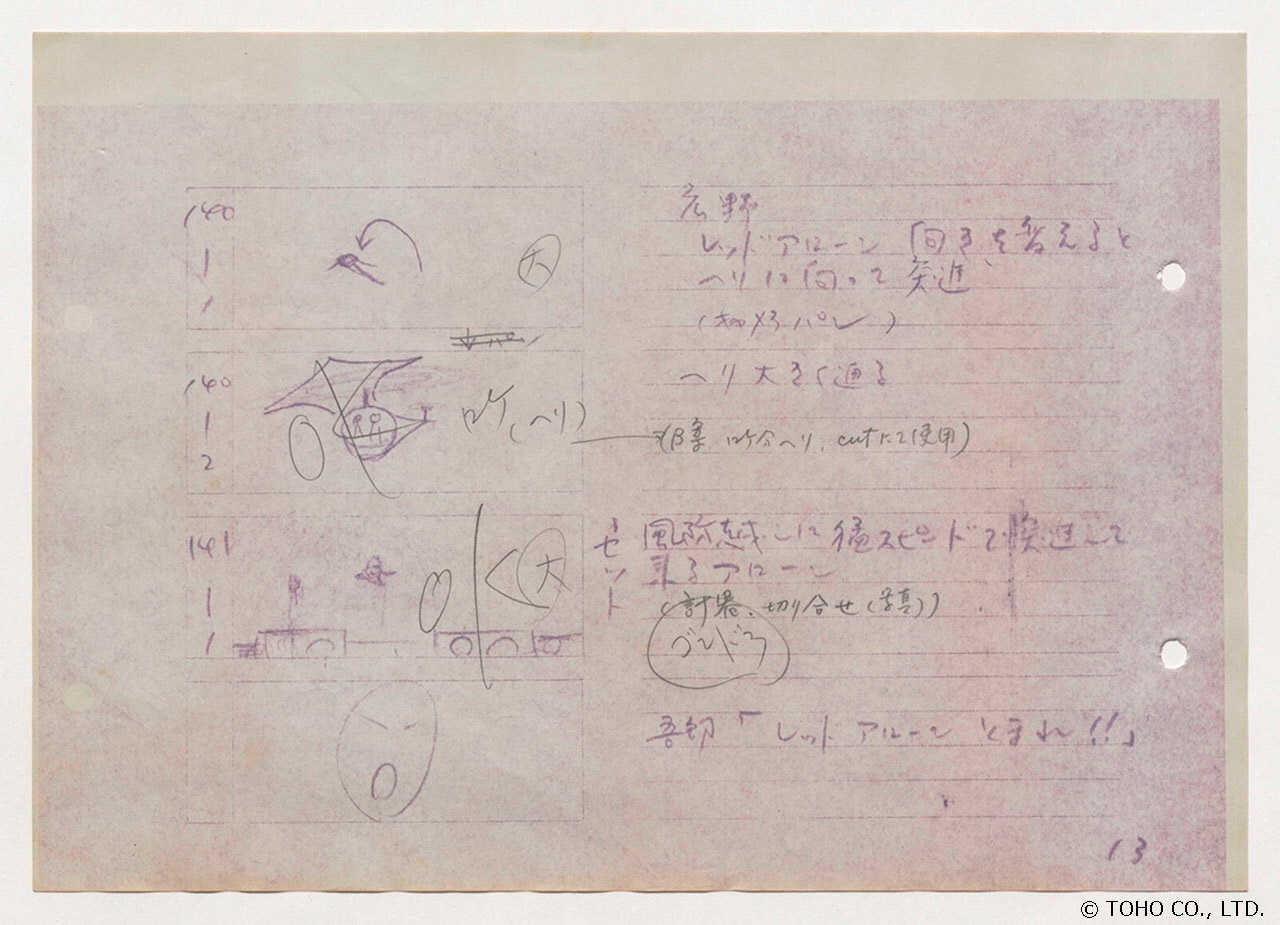 140
1
1
大
広野
レッドアローン 向きを替えると
ヘリに向って突進
ヘリ大きく通る
140
1
2
ロケ(ヘリ)
ロケ分ヘリ、cutにて使用)
141
1
1
大
セット
風防越しに猛スピードで突進して
来るアローン
(計器、切り合せ(写真))
ゴンドラ
吾郎「レッドアローン とまれ!!」
13
© TOHO CO., LTD.